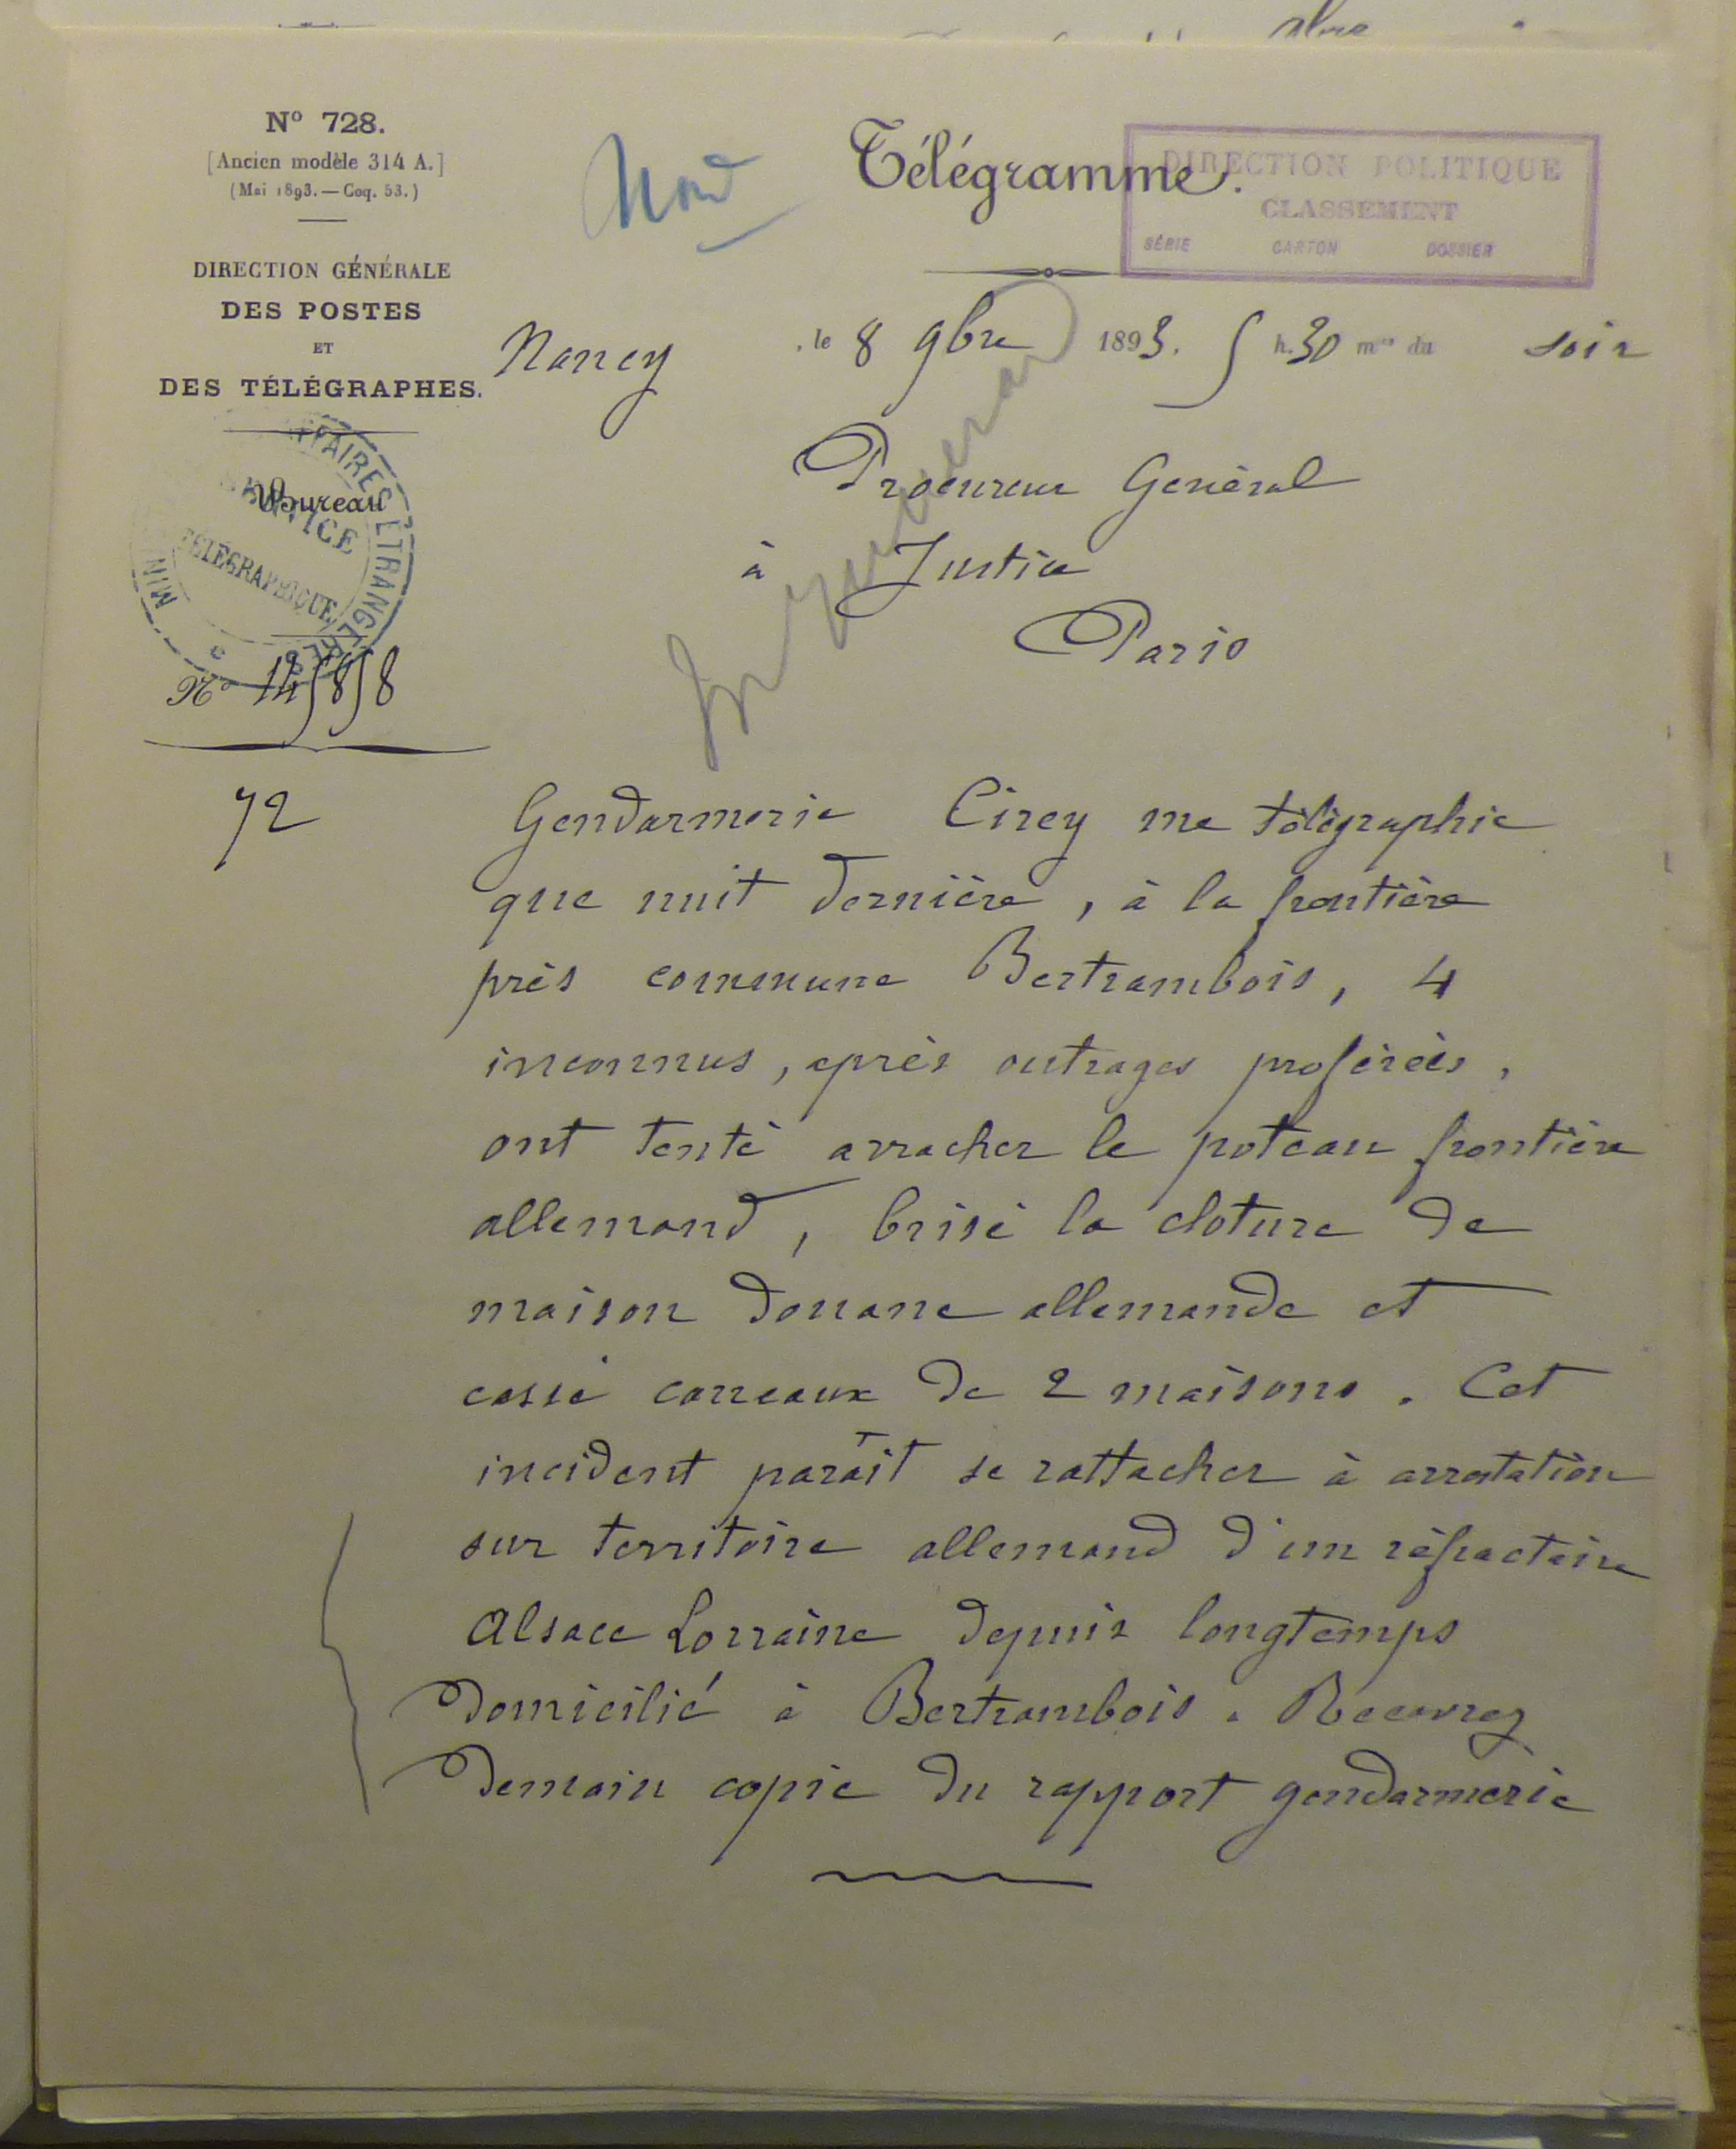 N° 728.
[Ancien modèle 314 A.]
(Mai 1893. — Coq. 53.)
DIRECTION GÉNÉRALE
DES POSTES
ET
DES TÉLÉGRAPHES.
Bureau
AFFAIRES ETRANGÈRES
SERVICE
TÉLÉGRAPHIQUE
MIN
N° 145858
72
Nord
Télégramme.
DIRECTION POLITIQUE
CLASSEMENT
SÉRIE CARTON DOSSIER
Nancy, le 8 9bre 1893. 5 h. 30 mes du soir
Procureur Général
à Justice
Paris
Gendarmerie Cirey me télégraphie
que nuit dernière, à la frontière
près commune Bertrambois, 4
inconnus, après outrages proférés,
ont tenté arracher le poteau frontière
allemand, brisé la cloture de
maison douane allemande et
cassé carreaux de 2 maisons. Cet
incident paraît se rattacher à arrestation
sur territoire allemand d'un réfractaire
Alsace Lorraine depuis longtemps
domicilié à Bertrambois. Recevrez
demain copie du rapport gendarmerie